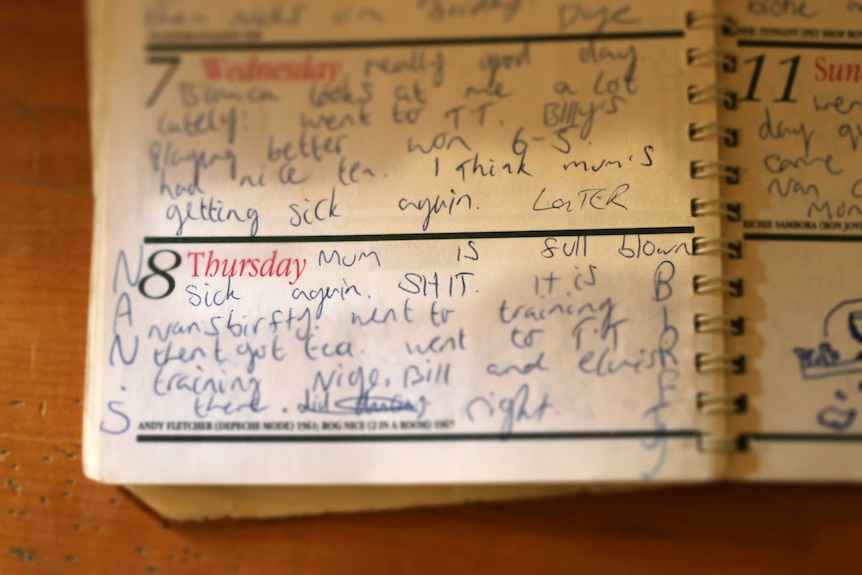 Dye
7 Wednesday really good day.
Bianca looks at me a lot
lately! went to T.T. Billy's
Playing better won 6-5.
had nice tea. I Think mum's
getting sick again. LaTER
8 Thursday Mum is full blown
sick again. SHIT. It is
nans birfty. went to training
then got tea. went to T.T
training Nige, Bill and elvis
there. did right.
NAN.S
BIRFTY
ANDY FLETCHER (DEPECHE MODE) 1961; ROG NICE (2 IN A ROOM) 1967
11 Sun
wen
day
came
Nan
mom
NEIL TENNANT (PET SHOP BO
RICHIE SAMBORA (BON JOV